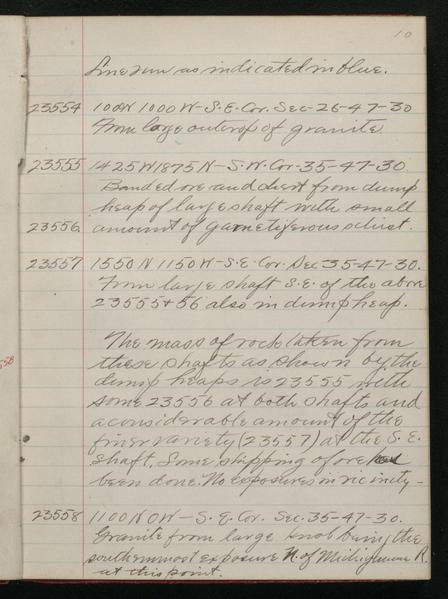 10
Line run as indicated in blue.
23554 100N 1000 W-S.E. Cor. Sec-26-47-30
From large outcrop of granite
23555 1425W1875N-S.W. Cor-35-47-30.
Banded ore and chert from dump
heap of large shaft with small
23556 amount of garnetiferous schist.
23557 1550N 1150W-S.E. Cor. Sec 35-47-30.
From large shaft S.E. of the above
23555+56 also in dump heap.
The mass of rock taken from
these shafts as shown by the
dump heaps is 23555 with
some 23556 at both shafts and
a considerable amount of the
finer variety (23557) at the S.E.
shaft. Some shipping of ore had
been done. No exposures in vicinity-
23558 1100N 0W-S.E. Cor. Sec. 35-47-30.
Granite from large knob being the
southernmost exposure N. of Michigamme R.
at this point.